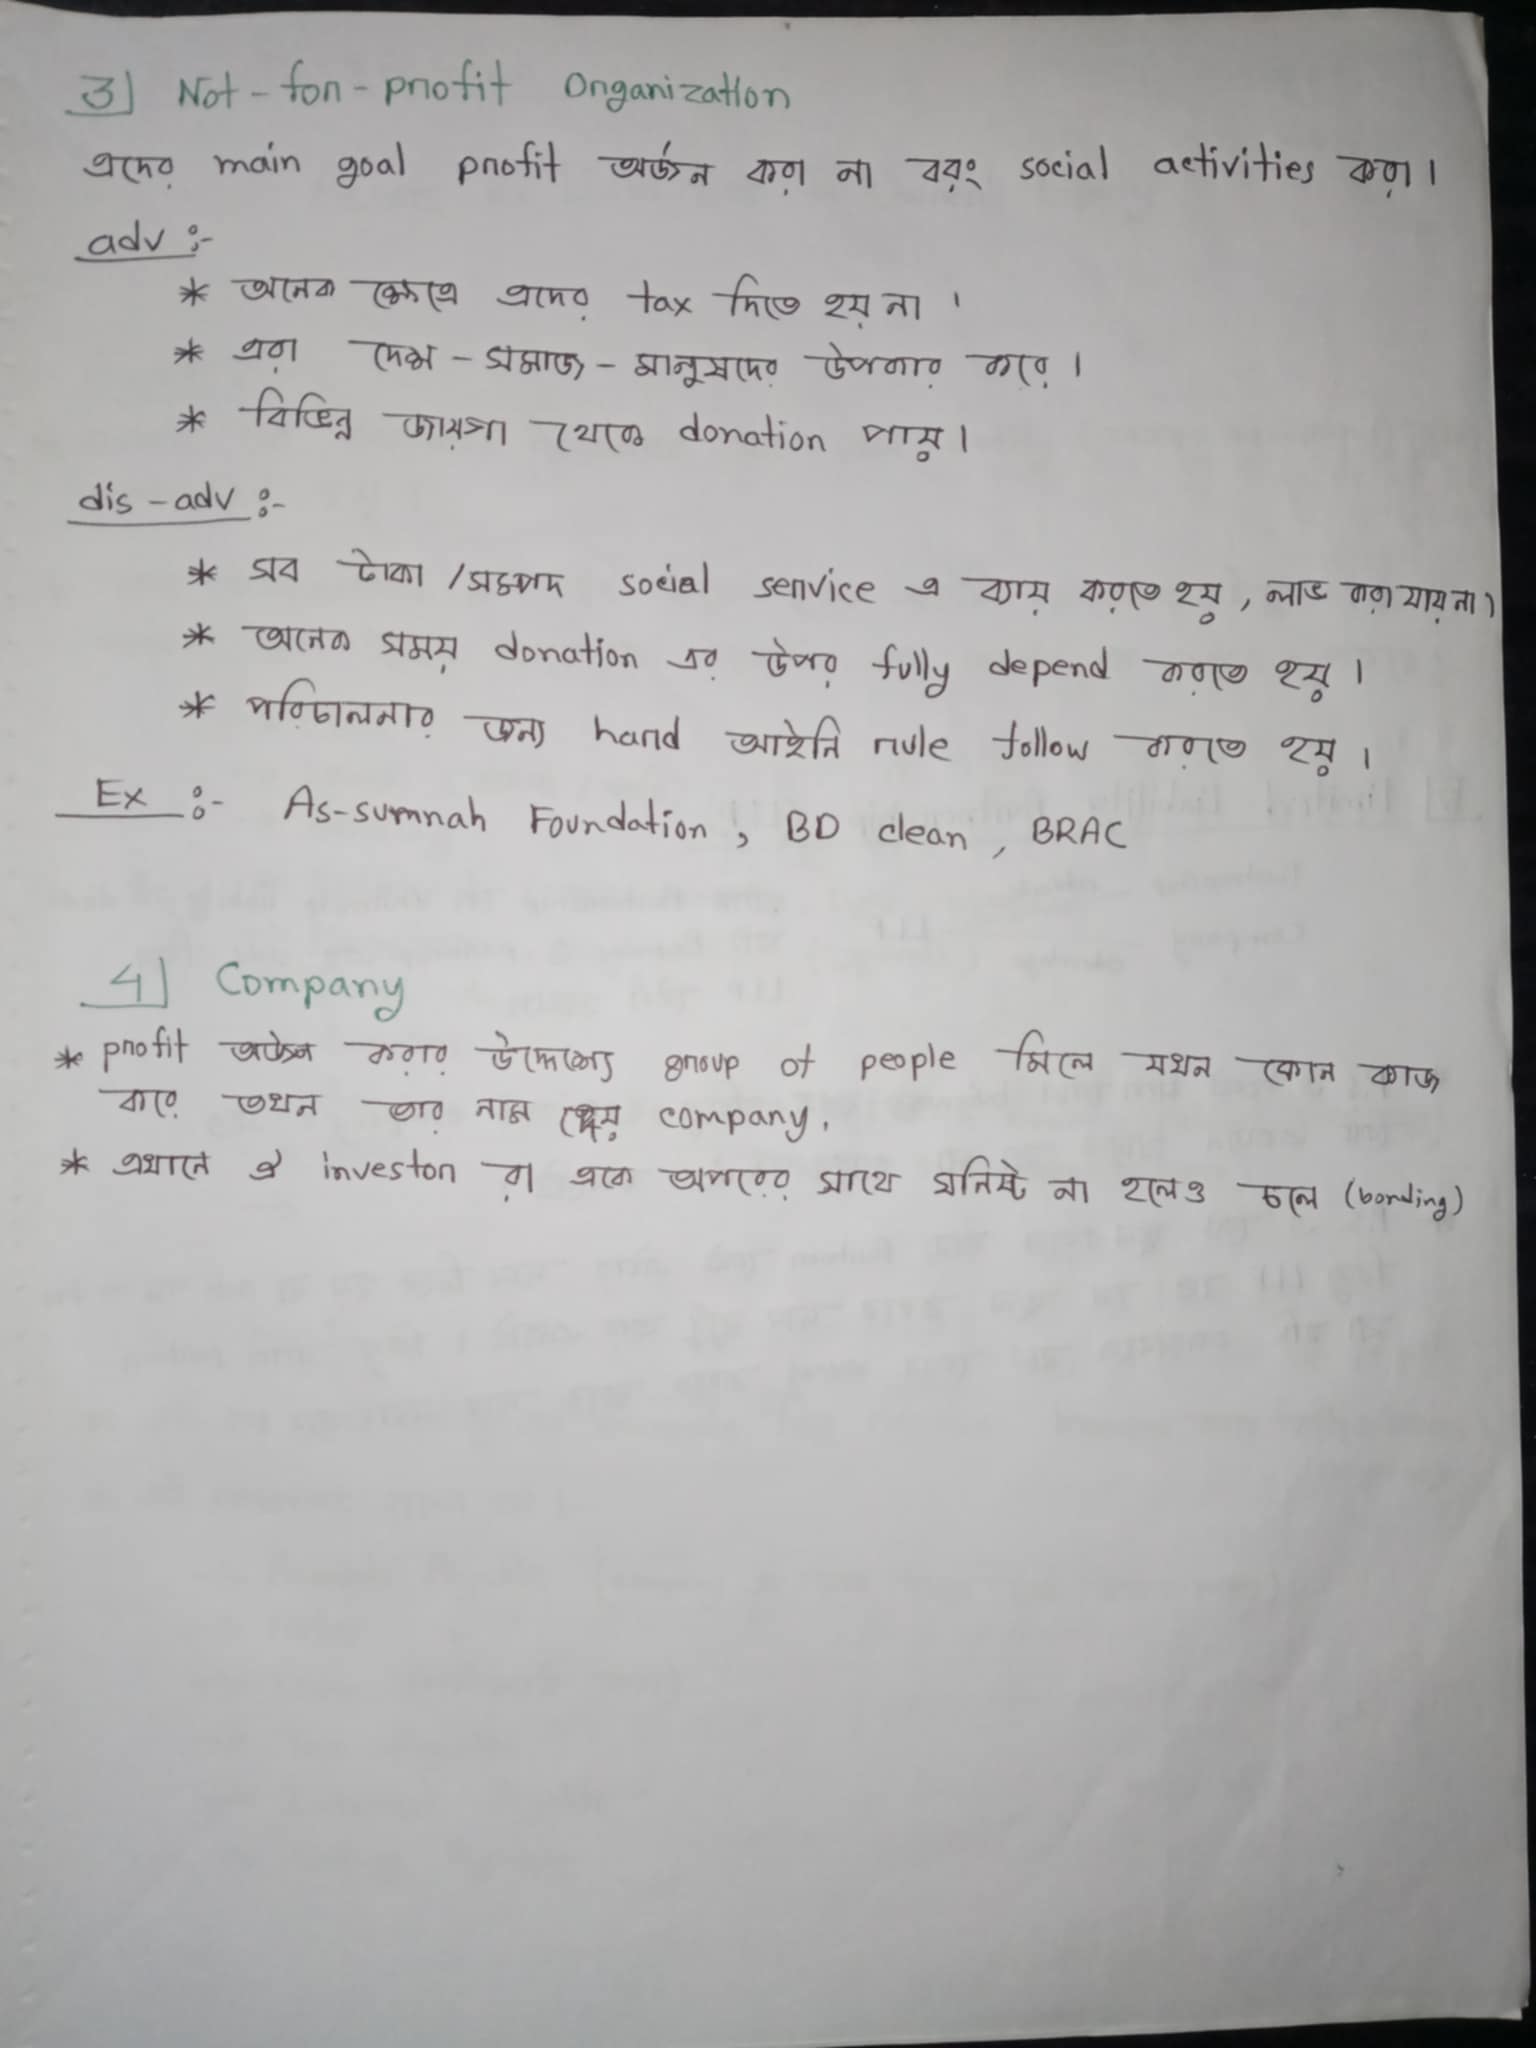 3] Not-for-profit Organization
এদের main goal profit অর্জন করা না বরং social activities করা।
adv :-
* অনেক ক্ষেত্রে এদের tax দিতে হয় না।
* এরা দেশ - সমাজ - মানুষদের উপকার করে।
* বিভিন্ন জায়গা থেকে donation পায়।
dis-adv :-
* সব টাকা/সম্পদ social service এ ব্যায় করতে হয়, লাভ করা যায় না।
* অনেক সময় donation এর উপর fully depend করতে হয়।
* পরিচালনার জন্য hard আইনি rule follow করতে হয়।
Ex :- As-sunnah Foundation, BD clean, BRAC
4] Company
* profit অর্জন করার উদ্দেশ্যে group of people মিলে যখন কোন কাজ
করে তখন তার নাম দেয় company.
* এখানে ঐ investor রা একে অপরের সাথে ঘনিষ্ট না হলেও চলে (bonding)